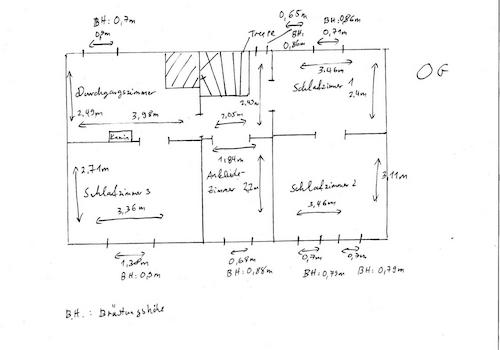 BH: 0,7m
0,9m
Treppe
0,65m
BH:
0,86m
BH: 0,86m
0,71m
OG
Durchgangszimmer
2,49m
3,98m
Kamin
2,49m
2,05m
3,46m
Schlafzimmer 1
2,4m
2,71m
Schlafzimmer 3
3,36m
1,84m
Ankleide-
zimmer
2,72m
Schlafzimmer 2
3,46m
3,11m
1,38m
BH: 0,9m
0,68m
BH: 0,88m
0,7m
BH: 0,79m
0,7m
BH: 0,79m
BH.: Brüstungshöhe